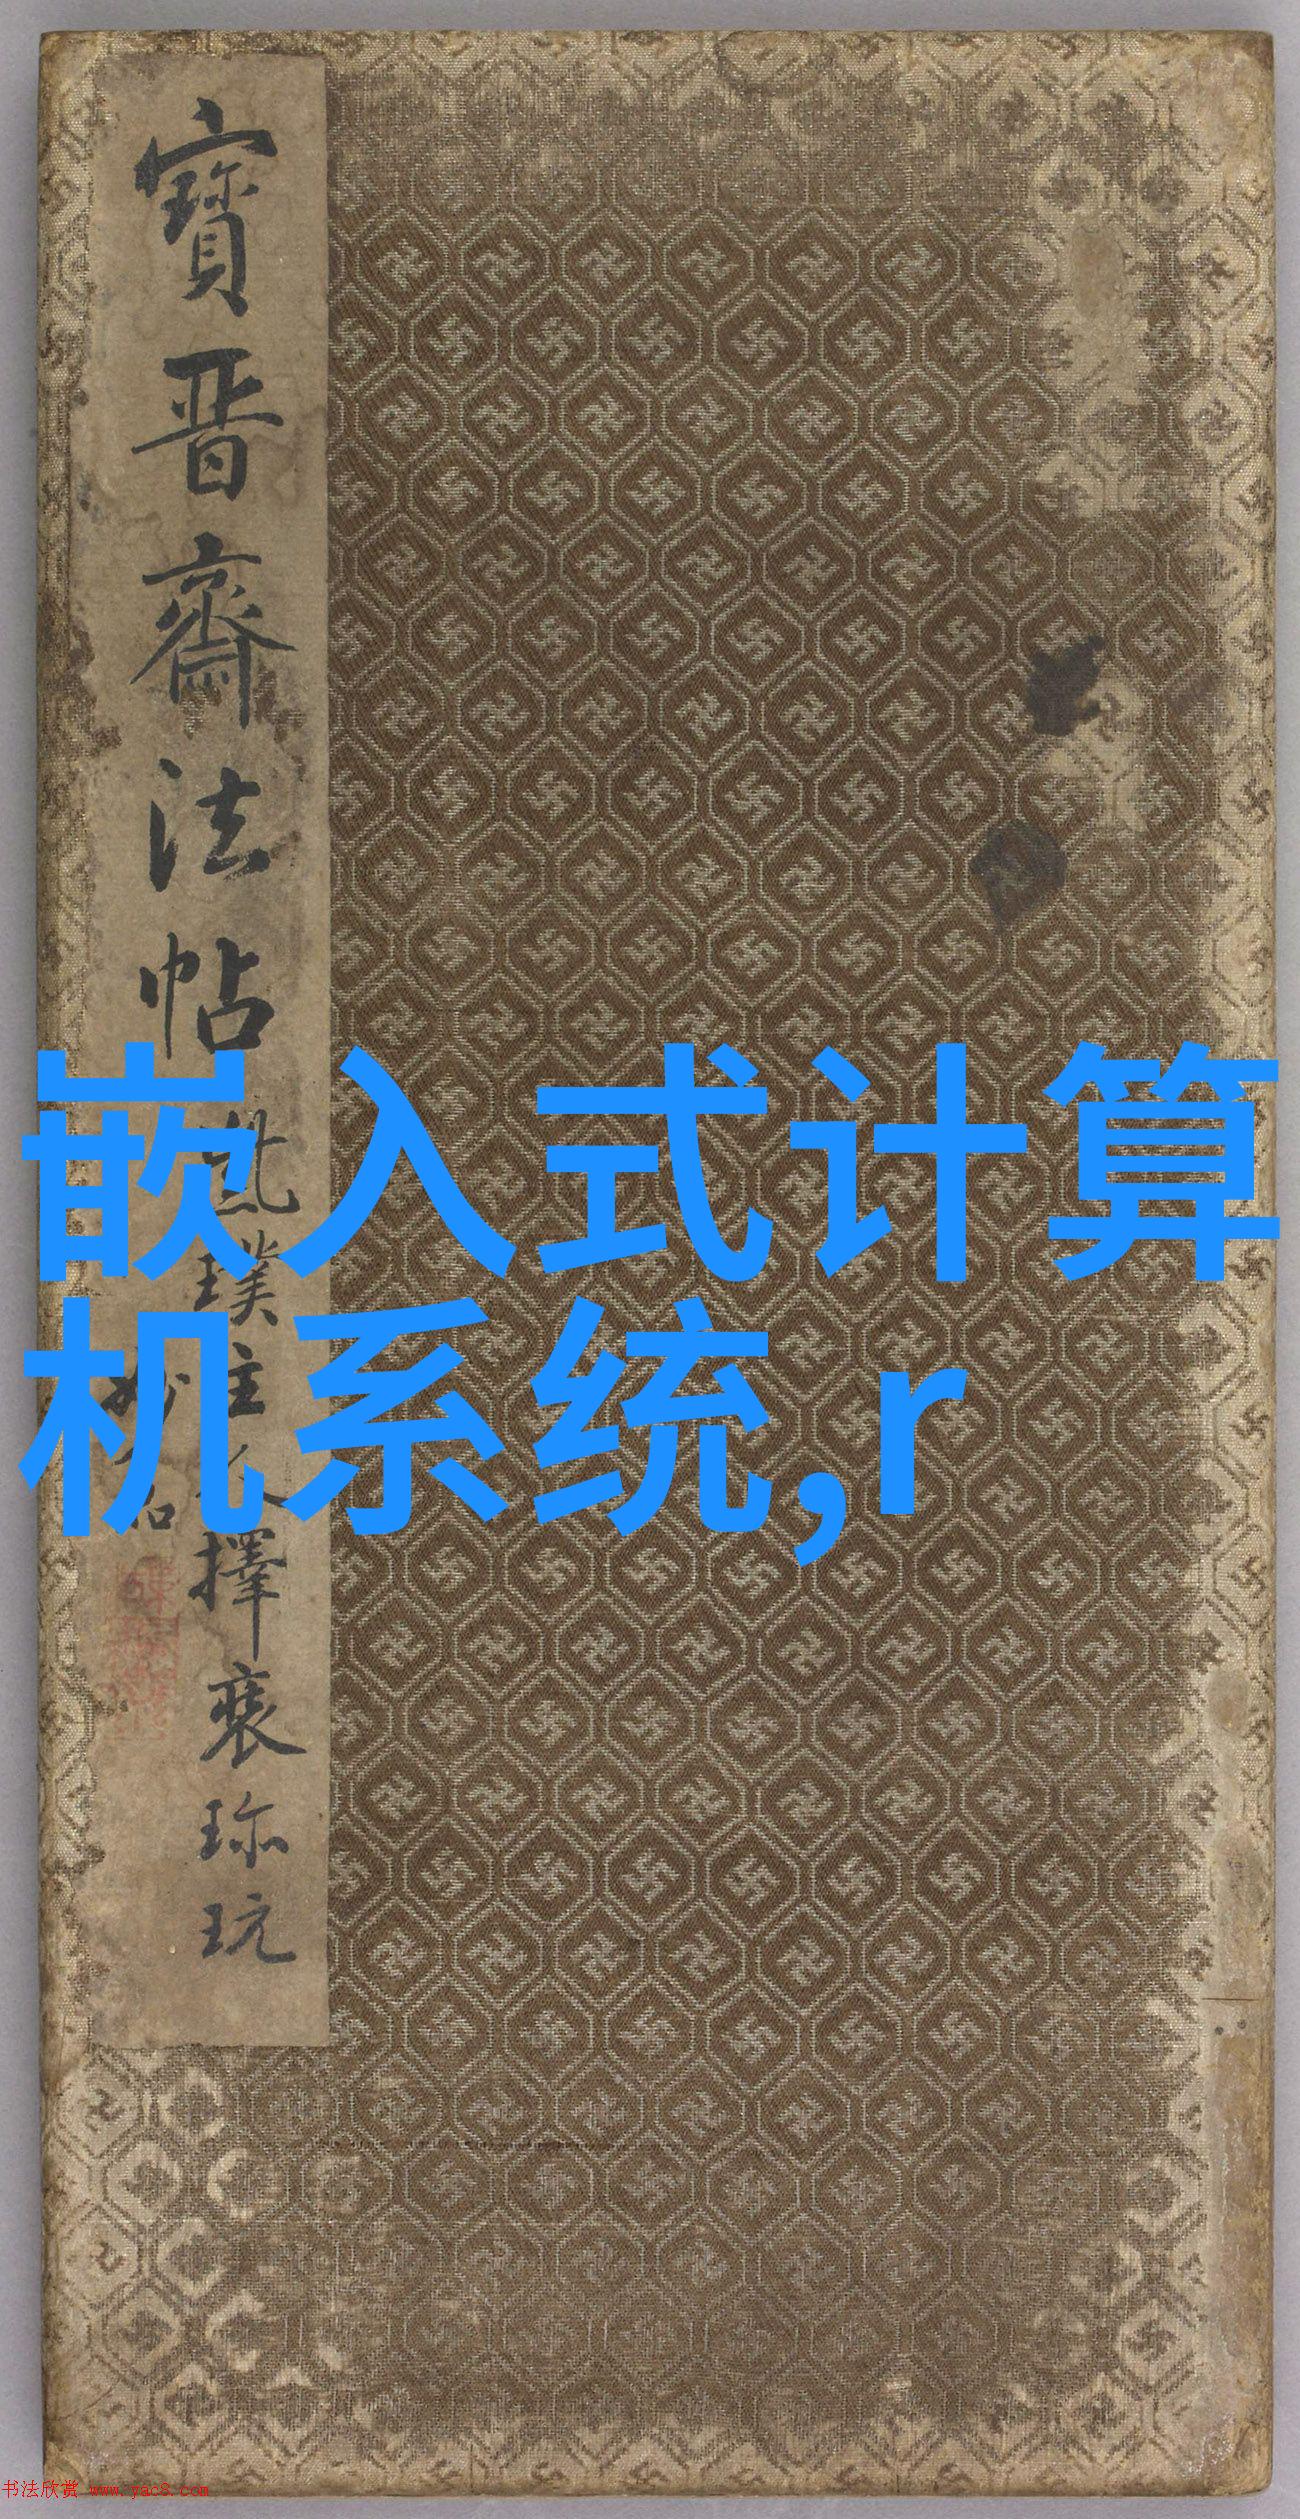 寶晉齋法帖
璞主人擇裘珎玩
妙品
嵌入式计算
机系统,r
书法欣赏 www.yac8.com